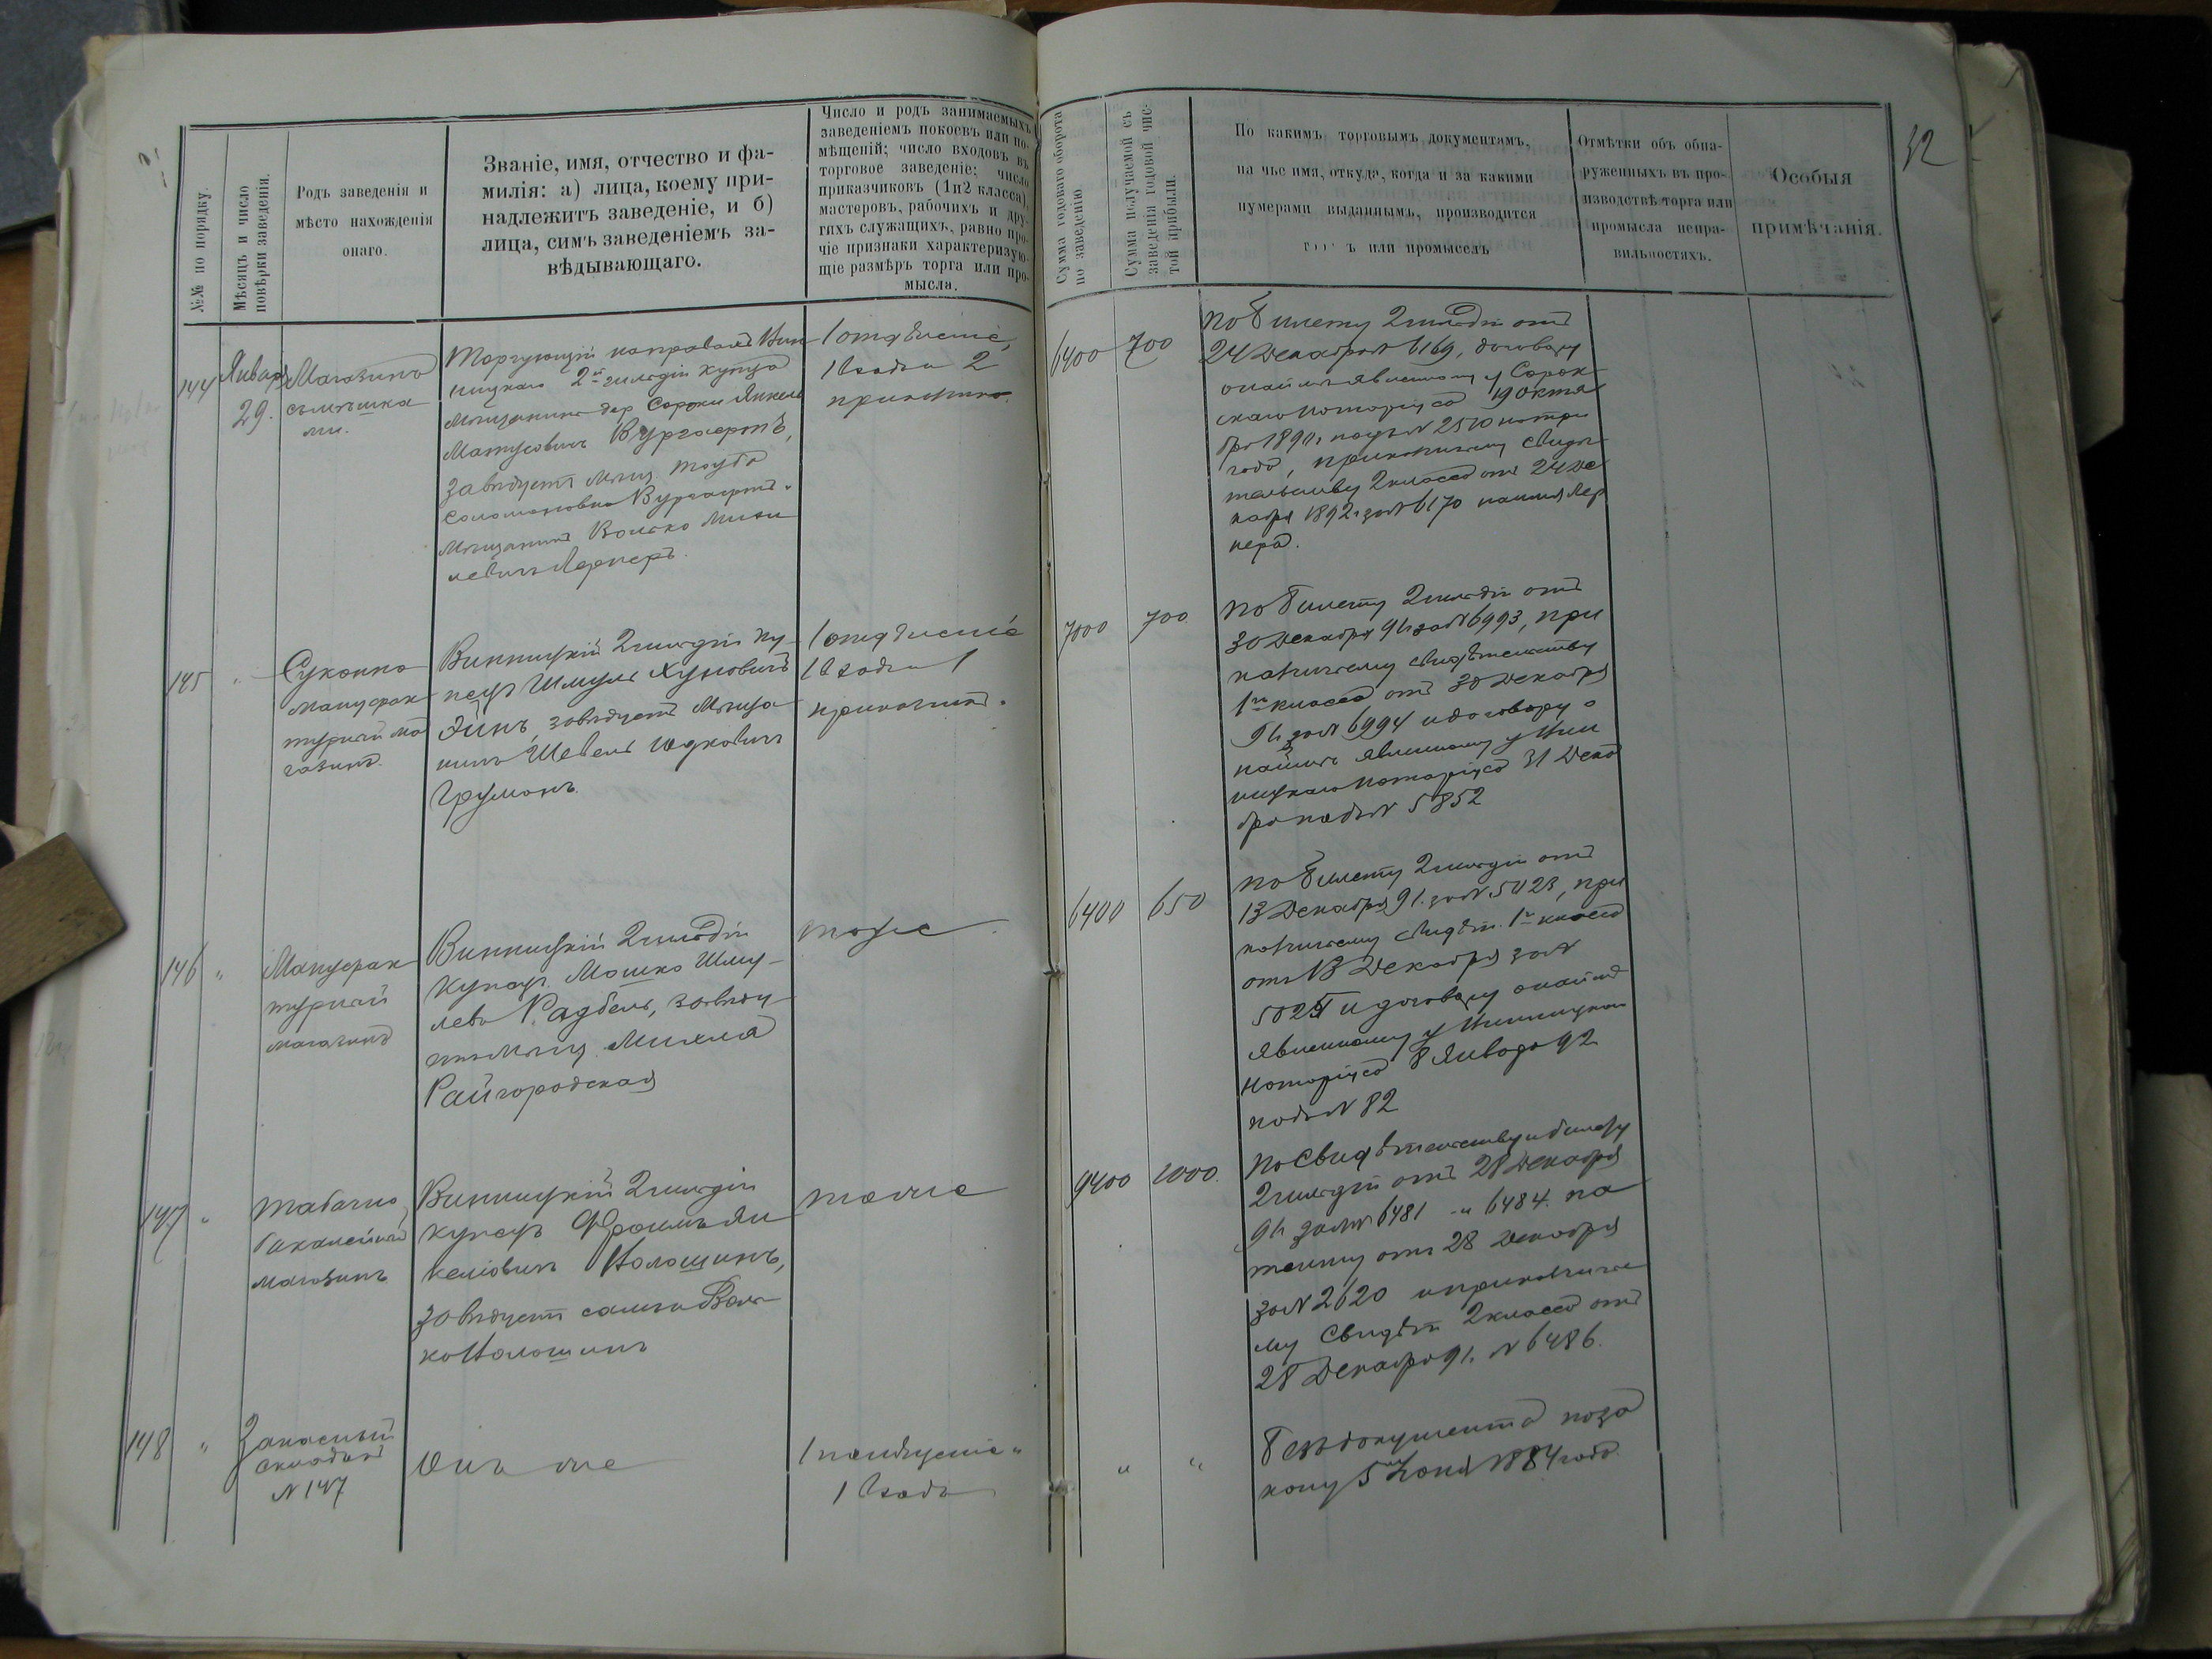 32
№№ по порядку.
Мѣсяцъ и число
повѣрки заведенія.
Родъ заведенія и
мѣсто нахожденія
онаго.
Званіе, имя, отчество и фа-
милія: а) лица, коему при-
надлежитъ заведеніе, и б)
лица, симъ заведеніемъ за-
вѣдывающаго.
Число и родъ занимаемыхъ
заведеніемъ покоевъ или по-
мѣщеній; число входовъ въ
торговое заведеніе; число
приказчиковъ (1 и 2 класса),
мастеровъ, рабочихъ и дру-
гихъ служащихъ, равно про-
чіе признаки характеризую-
щіе размѣръ торга или про-
мысла.
Сумма годоваго оборота
по заведенію
Сумма получаемой съ
заведенія годовой чис-
той прибыли.
По какимъ торговымъ документамъ,
на чье имя, откуда, когда и за какими
нумерами выданнымъ, производится
ъ или промыселъ
Отмѣтки объ обна-
руженныхъ въ про-
изводствѣ торга или
промысла непра-
вильностяхъ.
Особыя
примѣчанія.
144
Января
29.
Магазинъ
съ мѣшка
ми.
Торгующій на правахъ Вин
ницкаго 2й гильдіи купца
мѣщанинъ Сороки Янкель
Матусовичъ Вургафтъ,
завѣдуетъ мѣщ. Тауба
Соломоновна Вургафтъ
мѣщанинъ Волько
Лернеръ.
1 отдѣленіе,
1 входъ и 2
прикащика.
6400
700
по билету 2 гильдіи отъ
24 Декабря № 6169, договору
о наймѣ явленному у Сорок
скаго нотаріуса 19 Октя
бря 1890 г. подъ № 2510 на три
года, приказчичьему свидѣ
тельству 2 класса отъ 24 Де
кабря 1892 г. за № 6170 на имя Лер
нера.
145
"
Суконно
мануфак
турный ма
газинъ.
Винницкій 2 гильдіи ку-
пецъ Шмуль Хуновичъ
Эйнъ, завѣдуетъ мѣща
нинъ Шевель Юдковичъ
Груманъ.
1 отдѣленіе
1 входъ и 1
прикащикъ.
7000
700.
по билету 2 гильдіи отъ
30 Декабря 91 г. за № 6993, при
кащичьему свидѣтельству
1го класса отъ 30 Декабря
91 г. за № 6994 и договору о
наймѣ явленному у Вин
ницкаго нотаріуса 31 Дека
бря подъ № 5852
146
"
Мануфак
турный
магазинъ
Винницкій 2 гильдіи
купецъ Мошко Шму-
левъ Радбель, завѣду
етъ мѣщ. Михля
Райгородская
тоже
6400
650
по билету 2 гильдіи отъ
13 Декабря 91 г. за № 5023, при
кащичьему свидѣт. 1го класса
отъ 13 Декабря за №
и договору о наймѣ
явленному у Винницкаго
нотаріуса 8 Января 92
подъ № 82
147
"
Табачно
бакалейный
магазинъ
Винницкій 2 гильдіи
купецъ Фроимъ Ян
келіовичъ Волошинъ,
завѣдуетъ самъ и Воль
ко Волошинъ
тоже
9400
1000.
По свидѣтельству и билету
2 гильдіи отъ 28 Декабря
91 г. за №№ 6481 и 6484. па
тенту отъ 28 Декабря
за № 2620 и приказчичье
му свидѣт. 2 класса отъ
28 Декабря 91. № 6486.
148
"
Запасный
складъ
№ 147
Онъ же
1 помѣщеніе
1 входъ
"
"
безъ документа по за
кону 5 Іюня 1884 года.